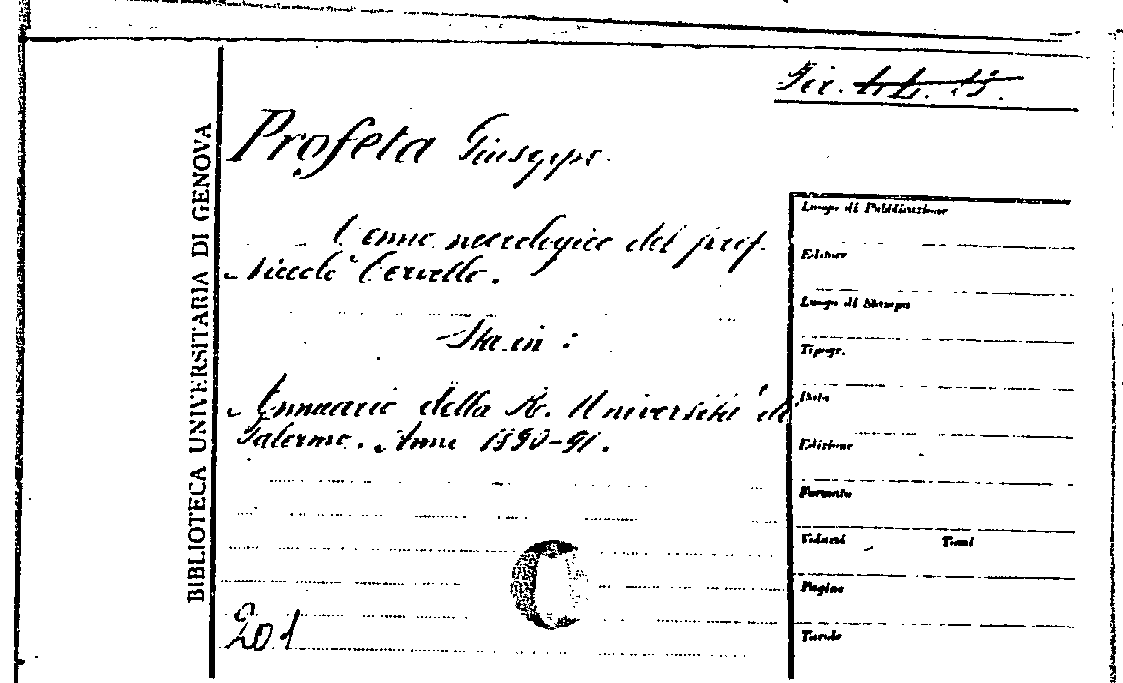 BIBLIOTECA UNIVERSITARIA DI GENOVA
Profeta Giuseppe.
Cenno necrologico del prof.
Niccolò Cervello.
Sta in :
Annuario della R. Università di
Palermo. Anno 1890-91.
201
Luogo di Pubblicazione
Editore
Luogo di Stampa
Tipogr.
Data
Edizione
Formato
Volumi Tomi
Pagine
Tavole